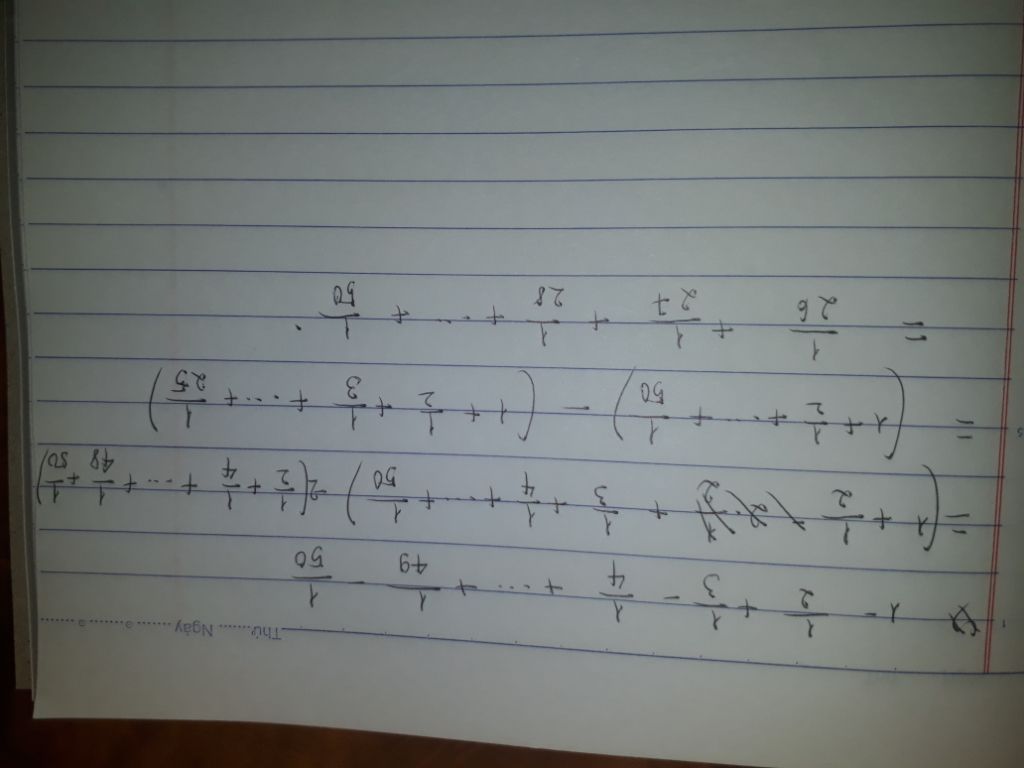 Thứ ........ Ngày ........
1 - 1/2 + 1/3 - 1/4 + ... + 1/49 - 1/50
= (1 + 1/2 + 1/3 + 1/4 + ... + 1/50) - 2(1/2 + 1/4 + ... + 1/48 + 1/50)
= (1 + 1/2 + ... + 1/50) - (1 + 1/2 + 1/3 + ... + 1/25)
= 1/26 + 1/27 + 1/28 + ... + 1/50.